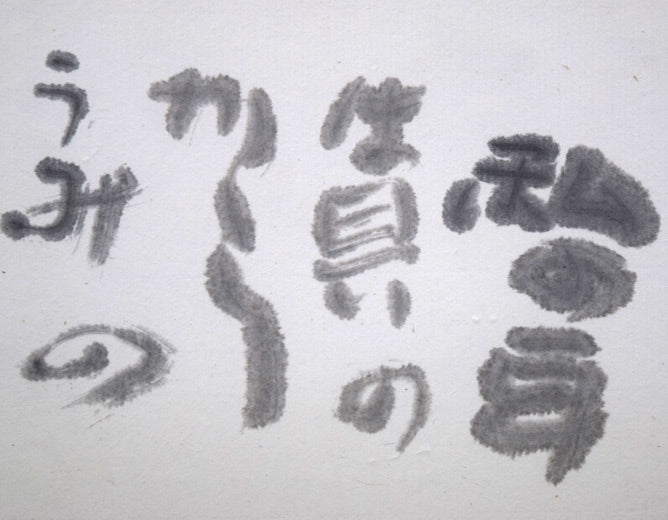 私の耳
は貝の
から
うみの